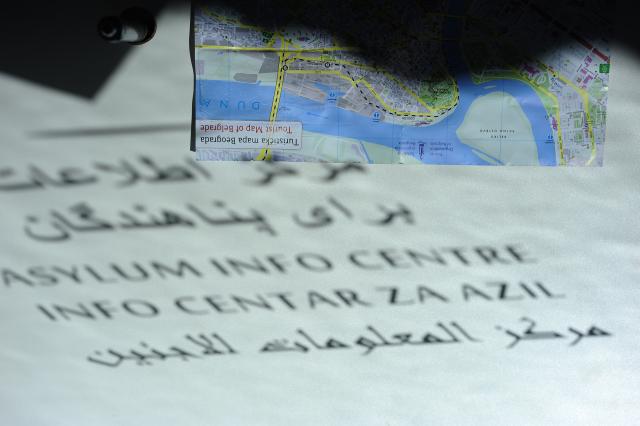 Turistička mapa Beograda
Tourist Map of Belgrade
DUNA
مرکز اطلاعات
برای پناهندگان
ASYLUM INFO CENTRE
INFO CENTAR ZA AZIL
مركز المعلومات للاجئين